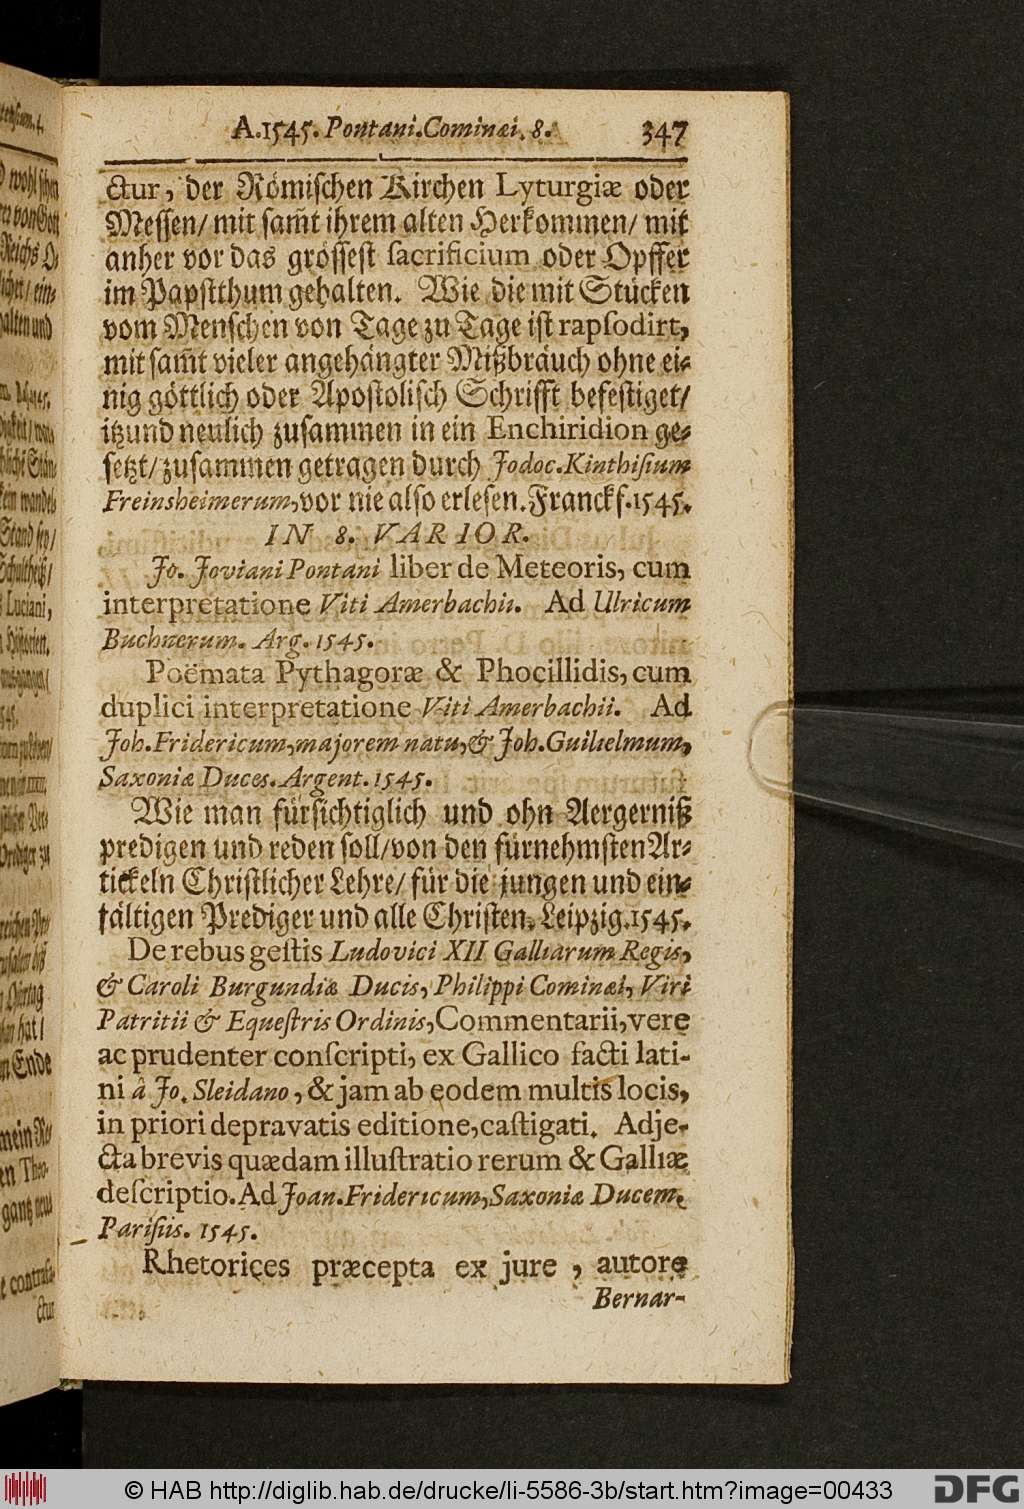 A.1545. Pontani.Cominæi. 8. 347
ctur, der Römischen Kirchen Lyturgiæ oder
Messen/ mit sam̃t ihrem alten Herkommen/ mit
anher vor das grössest sacrificium oder Opffer
im Papstthum gehalten. Wie die mit Stücken
vom Menschen von Tage zu Tage ist rapsodirt,
mit sam̃t vieler angehängter Mißbräuch ohne ei-
nig göttlich oder Apostolisch Schrifft befestiget/
itzund neulich zusammen in ein Enchiridion ge-
setzt/ zusammen getragen durch Jodoc.Kinthisium
Freinsheimerum, vor nie also erlesen. Franckf.1545.
IN 8. VARIOR.
Jo. Joviani Pontani liber de Meteoris, cum
interpretatione Viti Amerbachii. Ad Ulricum
Buchnerum. Arg. 1545.
Poëmata Pythagoræ & Phocillidis, cum
duplici interpretatione Viti Amerbachii. Ad
Joh.Fridericum, majorem natu, & Joh.Guilielmum,
Saxoniæ Duces. Argent. 1545.
Wie man fürsichtiglich und ohn Aergerniß
predigen und reden soll/ von den fürnehmsten Ar-
tickeln Christlicher Lehre/ für die jungen und ein-
fältigen Prediger und alle Christen. Leipzig.1545.
De rebus gestis Ludovici XII Galliarum Regis,
& Caroli Burgundiæ Ducis, Philippi Cominæi, Viri
Patritii & Equestris Ordinis, Commentarii, vere
ac prudenter conscripti, ex Gallico facti lati-
ni â Jo. Sleidano, & jam ab eodem multis locis,
in priori depravatis editione, castigati. Adje-
cta brevis quædam illustratio rerum & Galliæ
descriptio. Ad Joan.Fridericum, Saxoniæ Ducem.
Parisiis. 1545.
Rhetorices præcepta ex jure, autore
Bernar-
© HAB http://diglib.hab.de/drucke/li-5586-3b/start.htm?image=00433
DFG